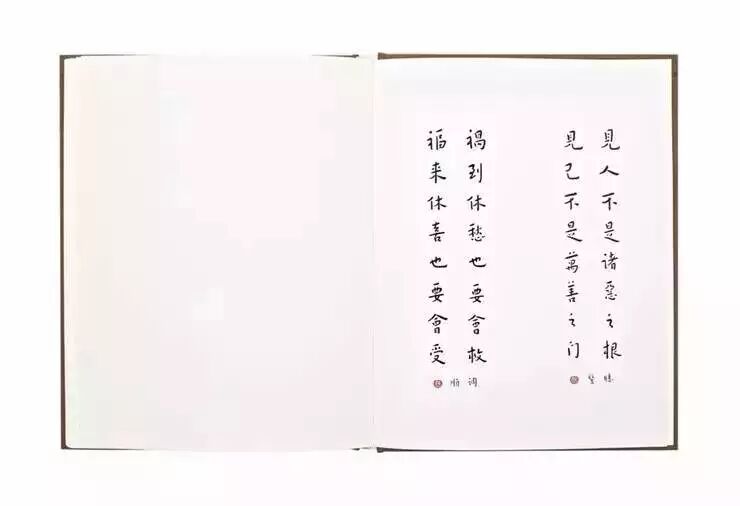 見人不是诸惡之根
見己不是萬善之门
禍到休愁也要會救
福来休喜也要會受